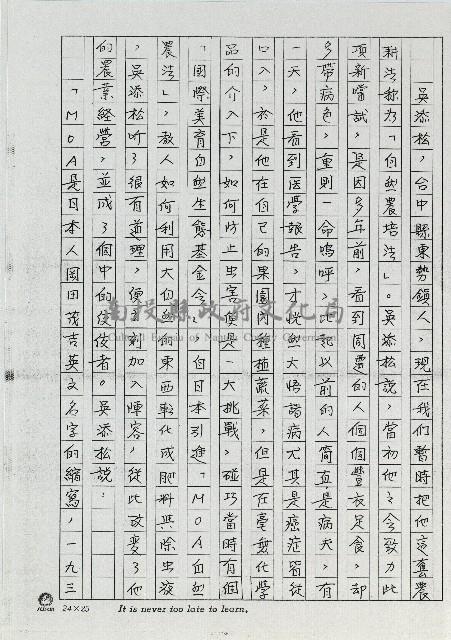 吳添松，台中縣東勢鎮人，現在我們暫時把他這套農
耕法称为「自然農培法」。吳添松說，當初他之会致力此
項新嚐試，是因多年前，看到周遭的人個個豐衣足食，却
多帶病色，重則一命嗚呼，比起以前的人简直是病夫，有
一天，他看到医學報告，才恍然大悟諸病尤其是癌症皆從
口入，於是他在自己的果園內種植蔬菜，但是在毫無化學
品的介入下，如何防止虫害便是一大挑戰，碰巧當時有個
「國際美育自然生態基金会」自日本引進「MOA自然
農法」，教人如何利用大自然的東西転化成肥料與除虫液
，吳添松听了很有道理，便立刻加入陣容，從此改变了他
的農業経營，並成了個中的佼佼者。吳添松說：
「MOA是日本人岡田茂吉英文名字的縮寫，一九三
南投縣政府文化局
Cultural Bureau of Nantou County Government
24×25
It is never too late to learn.